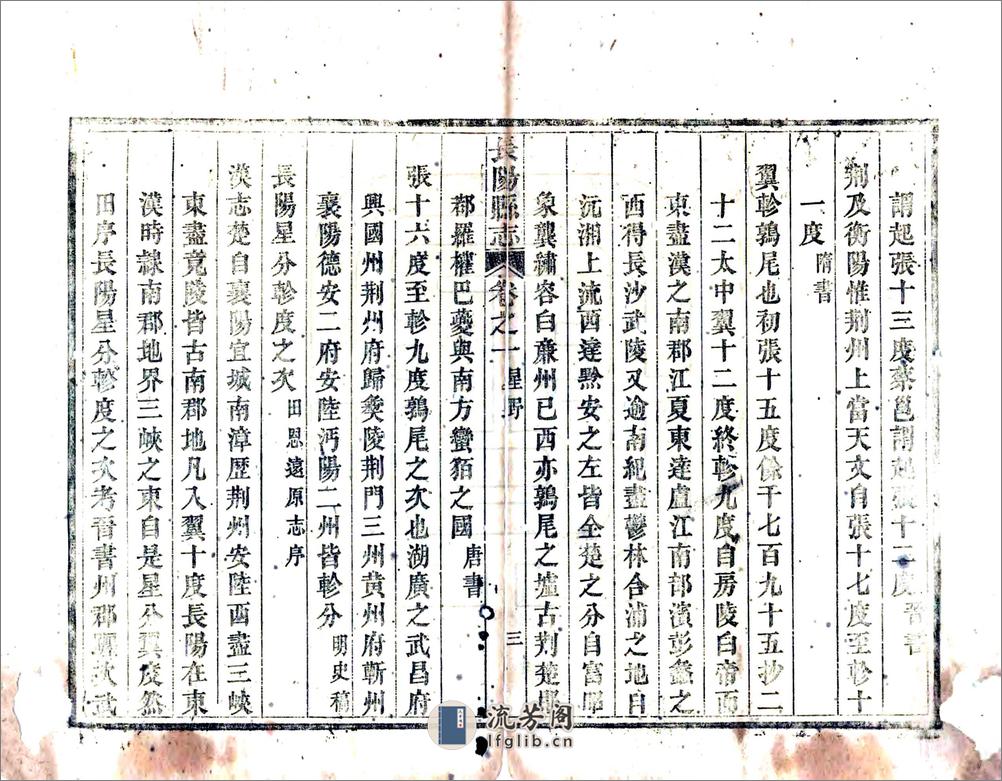 謂起張十三度蔡邕謂起張十二度晉書
荆及衡陽惟荆州上當天文自張十七度至軫十
一度隋書
翼軫鶉尾也初張十五度餘千七百九十五抄二
十二太中翼十二度終軫九度自房陵白帝而
東盡漢之南郡江夏東達盧江南部濱彭蠡之
西得長沙武陵又逾南紀盡鬱林合浦之地自
沅湘上流西達黔安之左皆全楚之分自富
象龔繡容白亷州已西亦鶉尾之墟古荆楚
長陽縣志
卷之一
星野
三
郡羅權巴夔與南方蠻貊之國唐書
張十六度至軫九度鶉尾之次也湖廣之武昌府
興國州荆州府歸夔陵荆門三州黄州府蘄州
襄陽德安二府安陸沔陽二州皆軫分明史稿
長陽星分軫度之次田恩遠原志序
漢志楚自襄陽宜城南漳歷荆州安陸西盡三峽
東盡竟陵皆古南郡地凡入翼十度長陽在東
漢時隸南郡地界三峽之東自是星分翼度然
田序長陽星分軫度之次考晉書州郡躔次武
流芳阁
lfglib.cn